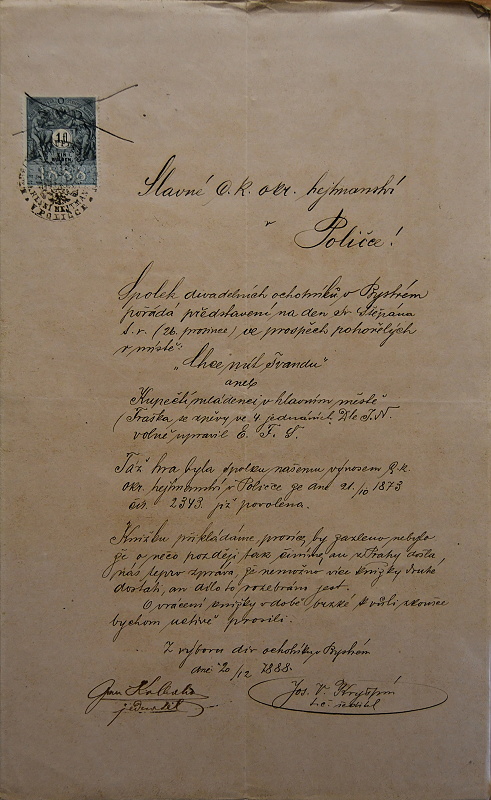 Slavné c. k. okr. hejtmanství
v
Poličce!
Spolek divadelních ochotníků v Bystrém
pořádá představení na den sv. Štěpána
t. r. (26. prosince) ve prospěch pohořelých
v místě:
„Chce mít švandu“
aneb
Kupečtí mládenci v hlavním městě
(Fraška se zpěvy ve 4 jednáních. Dle J. N.
volně upravil E. F. S.
Táž hra byla spolku našemu výnosem c. k.
okr. hejtmanství v Poličce ze dne 21/10 1873
čís. 2343. již povolena.
Knížku přikládáme, prosíce, by nebylo
že o něco později tak činíme, an z Prahy došla
nás teprv zpráva, že nemožno více knížky druhé
dostati, an dílo to rozebráno jest.
O vrácení knížky v době brzké k vůli zkoušce
bychom uctivě prosili.
Z výboru div. ochotníků v Bystrém
dne 20/12 1888.
Jan
jednatel
Jos. V.
t. č. ředitel
1888
V POLIČCE